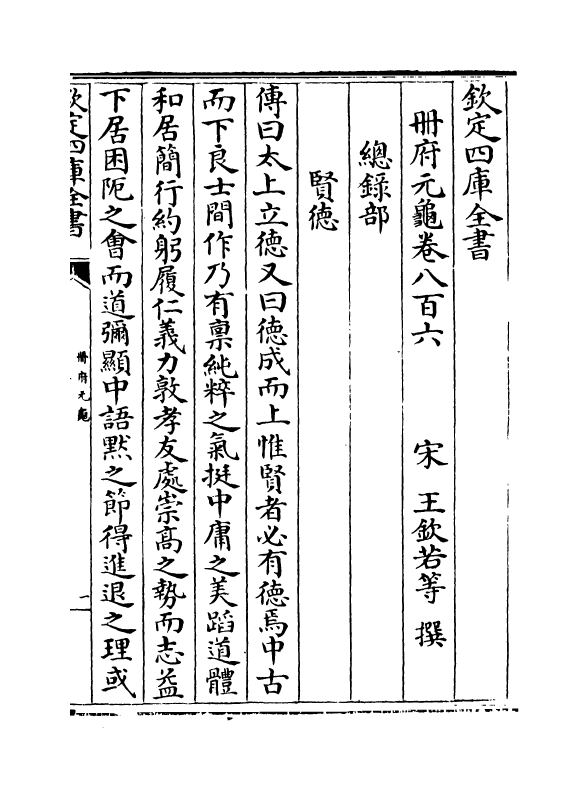 欽定四庫全書
冊府元龜卷八百六　宋　王欽若等　撰
總錄部
賢德
傳曰太上立德又曰德成而上惟賢者必有德焉中古
而下良士間作乃有禀純粹之氣挺中庸之美蹈道體
和居簡行約躬履仁義力敦孝友處崇髙之勢而志益
下居困阨之會而道彌顯中語黙之節得進退之理或
欽定四庫全書
冊府元龜
一